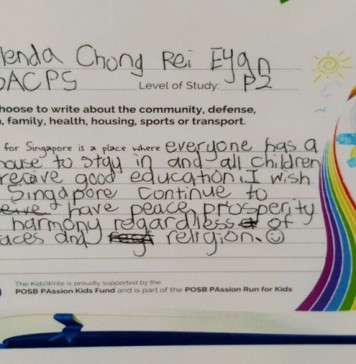 lenda Chong Rei Eyan
ACPS Level of Study: P2
hoose to write about the community, defense,
, family, health, housing, sports or transport.
for Singapore is a place where everyone has a
ouse to stay in and all children
receive good education. I wish
Singapore continue to
have peace, prosperity
harmony regardless of
aces and religion.
The KidsWrite is proudly supported by the
POSB PAssion Kids Fund and is part of the POSB PAssion Run for Kids